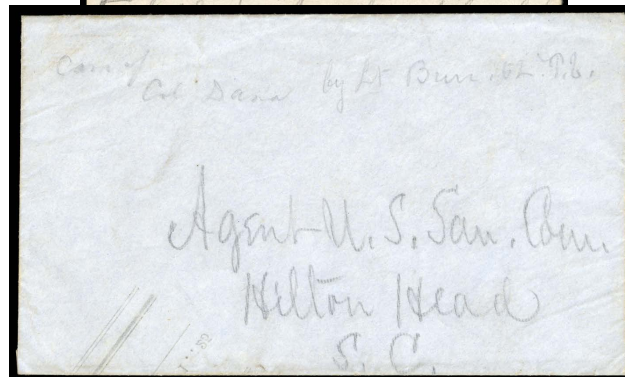 Care of
Col Dana by Lt
Agent U. S. San. Com.
Hilton Head
S. C.